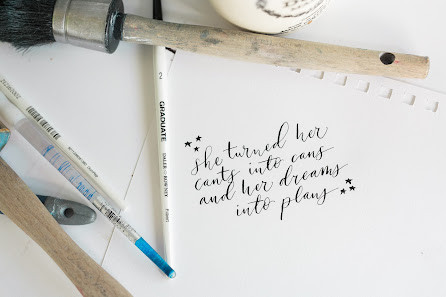 2
GRADUATE
DALER — ROWNEY
she turned her
cants into cans
and her dreams
into plans